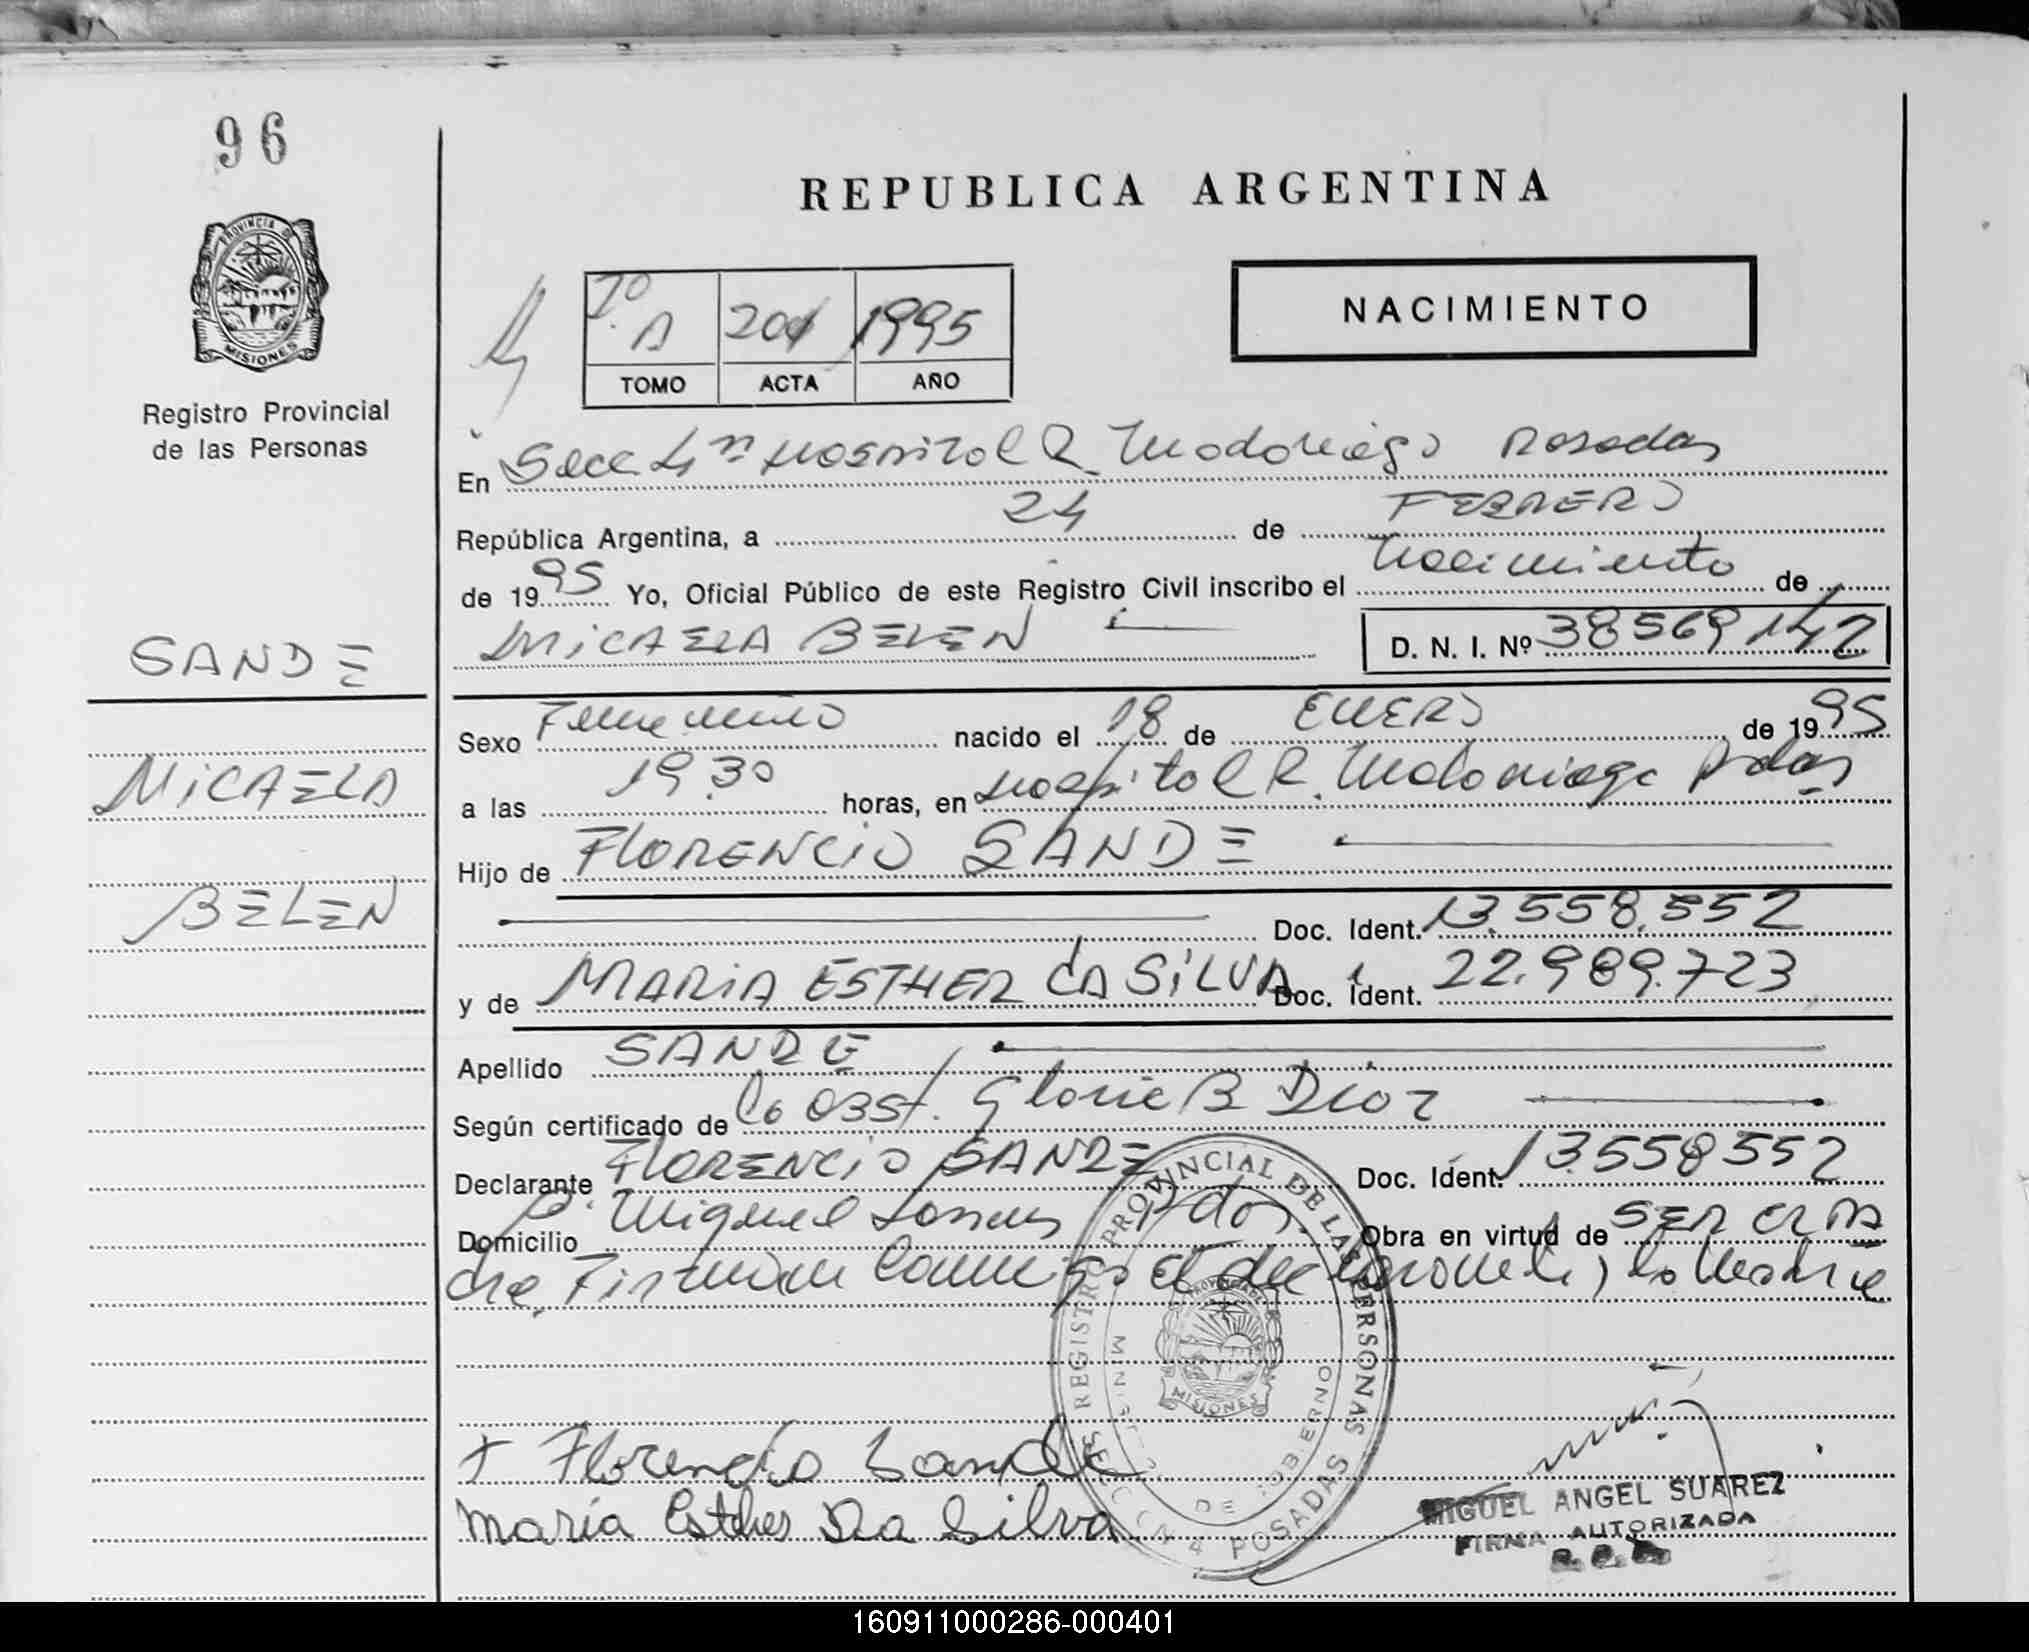 96
REPUBLICA ARGENTINA
PROVINCIA D
MISIONES
Registro Provincial
de las Personas
Tº A 201 1995
TOMO ACTA AÑO
NACIMIENTO
En Secc 4ª Hospital R. Madariaga Posadas
República Argentina, a 24 de FEBRERO
de 1995 Yo, Oficial Público de este Registro Civil inscribo el Nacimiento de
MICAELA BELEN D. N. I. Nº 38569142
SANDE
MICAELA
BELEN
Sexo Femenino nacido el 18 de ENERO de 1995
a las 19.30 horas, en Hospital R. Madariaga Pdas
Hijo de FLORENCIO SANDE
Doc. Ident. 13.558.552
y de MARIA ESTHER DA SILVA Doc. Ident. 22.989.723
Apellido SANDE
Según certificado de la Obst. Gloria B Diaz
Declarante FLORENCIO SANDE Doc. Ident. 13558552
Domicilio Miguel Lanus Pdas. Obra en virtud de SER EL PA
dre. Firman Conmigo el declarante y la Madre
REGISTRO PROVINCIAL DE LAS PERSONAS
PROVINCIA DE
MISIONES
DE GOBIERNO
SECC Nº 4 POSADAS
+ Florencio Sande
María Esther Da Silva
MIGUEL ANGEL SUAREZ
FIRMA AUTORIZADA
160911000286-000401